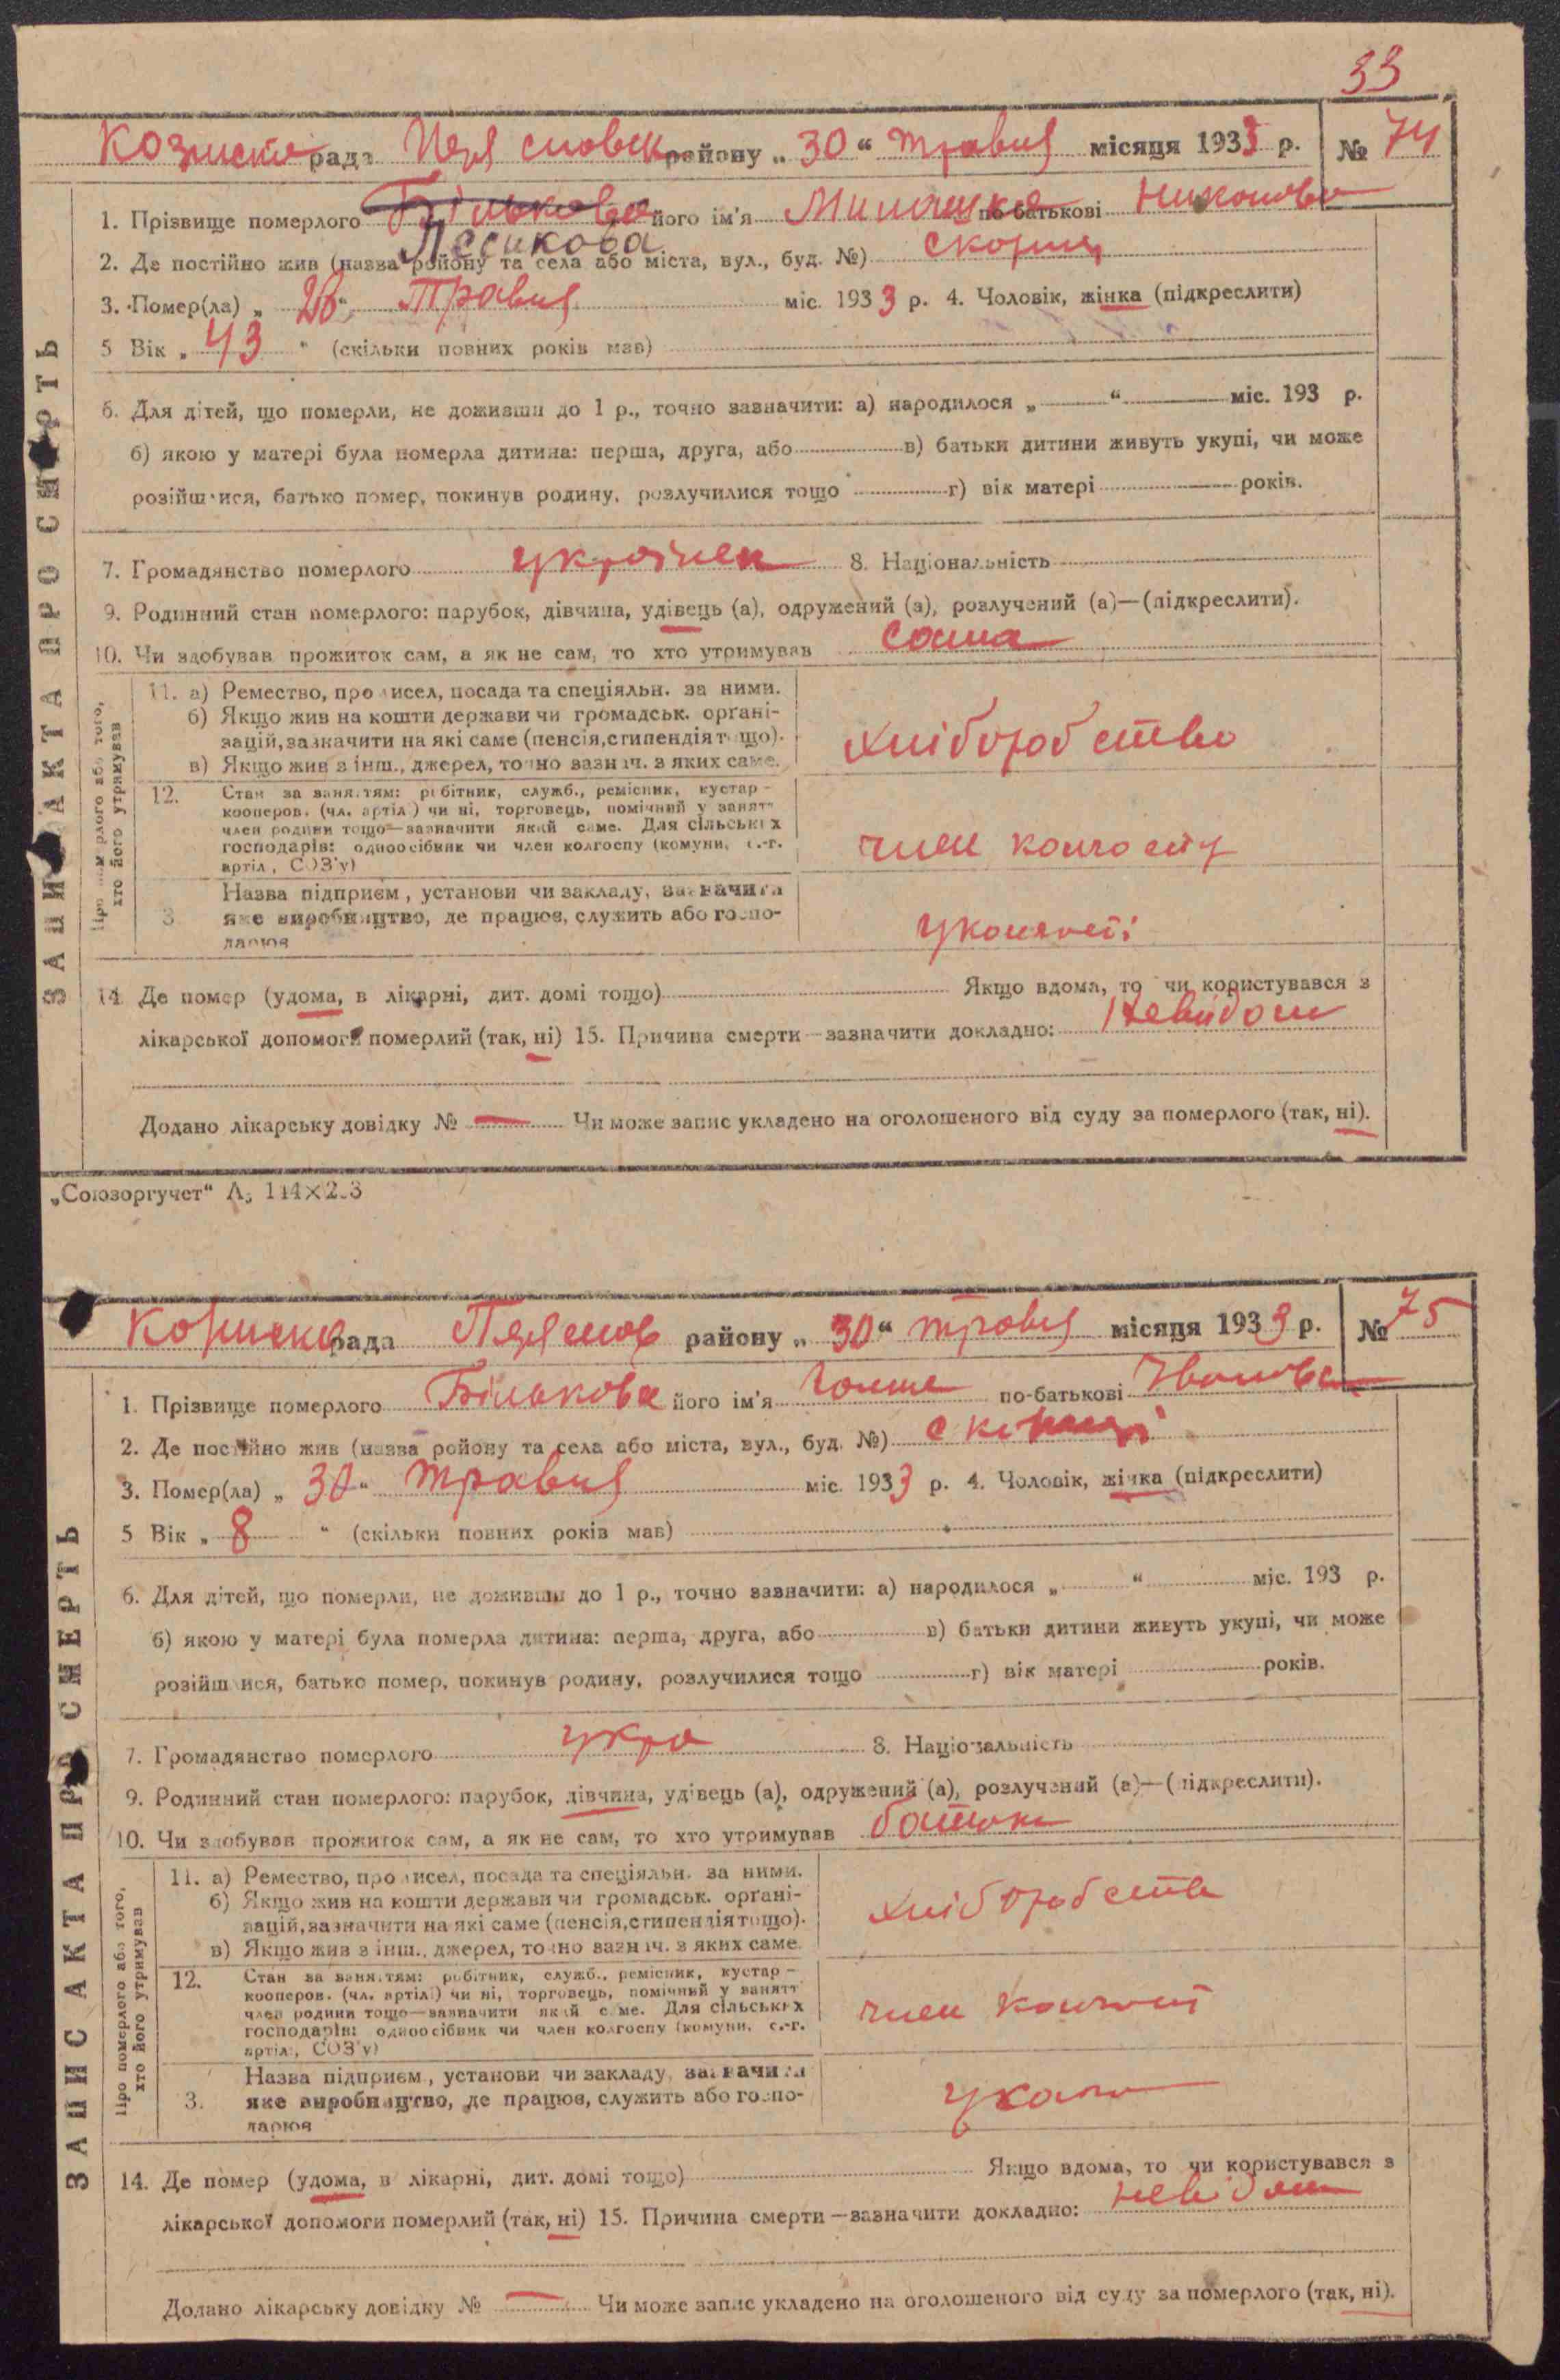 33
рада Пеpяславск району „ 30 “ травня місяця 1933 р. № 74
1. Прізвище померлого Бількова його ім'я по-батькові
Лесикова
2. Де постійно жив (назва району та села або міста, вул., буд. №)
3. Помер(ла) „ “ травня міс. 1933 р. 4. Чоловік, жінка (підкреслити)
5 Вік „ 43 “ (скільки повних років мав)
6. Для дітей, що померли, не доживши до 1 р., точно зазначити: а) народилося „ “ міс. 193 р.
б) якою у матері була померла дитина: перша, друга, або в) батьки дитини живуть укупі, чи може
розійшлися, батько помер, покинув родину, розлучилися тощо г) вік матері років.
7. Громадянство померлого 8. Національність
9. Родинний стан померлого: парубок, дівчина, удівець (а), одружений (а), розлучений (а)—(підкреслити).
10. Чи здобував прожиток сам, а як не сам, то хто утримував сама
11. а) Ремество, промисел, посада та спеціяльн. за ними.
б) Якщо жив на кошти держави чи громадськ. органі-
зацій, зазначити на які саме (пенсія, стипендія тощо).
в) Якщо жив з інш., джерел, точно зазнач. з яких саме.
хліборобство
12. Стан за заняттям: робітник, служб., ремісник, кустар -
кооперов. (чл. артіл.) чи ні, торговець, помічний у занятт
член родини тощо—зазначити який саме. Для сільських
господарів: одноосібник чи член колгоспу (комуни, с.-г.
артіл., СОЗ'у)
член колгоспу
3. Назва підприєм., установи чи закладу, зазначити
яке виробництво, де працює, служить або госпо-
дарює
Про померлого або того,
хто його утримував
14. Де помер (удома, в лікарні, дит. домі тощо) Якщо вдома, то чи користувався з
лікарської допомоги померлий (так, ні) 15. Причина смерти—зазначити докладно: невідом
Додано лікарську довідку № — Чи може запис укладено на оголошеного від суду за померлого (так, ні).
ЗАПИС АКТА ПРО СМЕРТЬ
„Союзоргучет“
рада району „ 30 “ травня місяця 1933 р. № 75
1. Прізвище померлого Бількова його ім'я по-батькові Іванова
2. Де постійно жив (назва району та села або міста, вул., буд. №)
3. Помер(ла) „ 30 “ травня міс. 1933 р. 4. Чоловік, жінка (підкреслити)
5 Вік „ 8 “ (скільки повних років мав)
6. Для дітей, що померли, не доживши до 1 р., точно зазначити: а) народилося „ “ міс. 193 р.
б) якою у матері була померла дитина: перша, друга, або в) батьки дитини живуть укупі, чи може
розійшлися, батько помер, покинув родину, розлучилися тощо г) вік матері років.
7. Громадянство померлого укра 8. Національність
9. Родинний стан померлого: парубок, дівчина, удівець (а), одружений (а), розлучений (а)—(підкреслити).
10. Чи здобував прожиток сам, а як не сам, то хто утримував батьки
11. а) Ремество, промисел, посада та спеціяльн. за ними.
б) Якщо жив на кошти держави чи громадськ. органі-
зацій, зазначити на які саме (пенсія, стипендія тощо).
в) Якщо жив з інш., джерел, точно зазнач. з яких саме.
12. Стан за заняттям: робітник, служб., ремісник, кустар -
кооперов. (чл. артіл.) чи ні, торговець, помічний у занятт
член родини тощо—зазначити який саме. Для сільських
господарів: одноосібник чи член колгоспу (комуни, с.-г.
артіл., СОЗ'у)
член
3. Назва підприєм., установи чи закладу, зазначити
яке виробництво, де працює, служить або госпо-
дарює
Про померлого або того,
хто його утримував
14. Де помер (удома, в лікарні, дит. домі тощо) Якщо вдома, то чи користувався з
лікарської допомоги померлий (так, ні) 15. Причина смерти—зазначити докладно: невідом
Додано лікарську довідку № — Чи може запис укладено на оголошеного від суду за померлого (так, ні).
ЗАПИС АКТА ПРО СМЕРТЬ